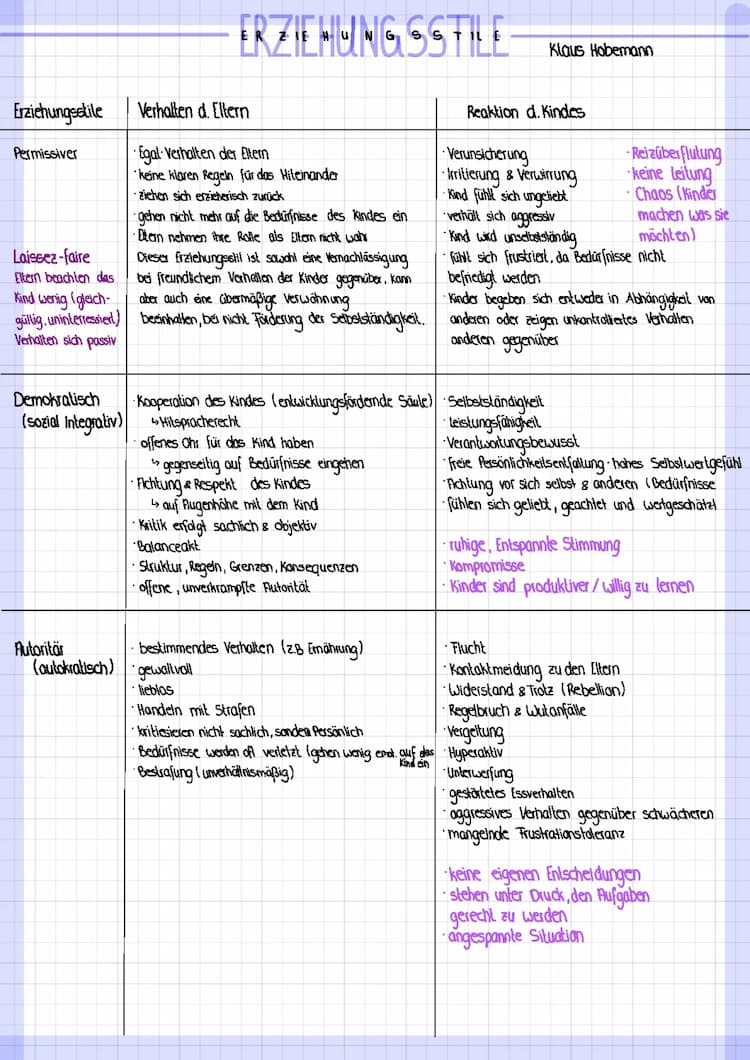 ERZIEHUNGSSTILE
ERZIEHUNGSSTILE
Klaus Hobemann
Erziehungsstile
Verhalten d. Eltern
Reaktion d. Kindes
Permissiver
Laissez-faire
Eltern beachten das
Kind wenig (gleich-
gültig, uninteressiert)
Verhalten sich passiv
· Egal-Verhalten der Eltern
· keine klaren Regeln für das Miteinander
· ziehen sich erzieherisch zurück
· gehen nicht mehr auf die Bedürfnisse des Kindes ein
· Eltern nehmen ihre Rolle als Eltern nicht wahr
Dieser Erziehungsstil ist sowohl eine Vernachlässigung
bei freundlichem Verhalten der Kinder gegenüber, kann
aber auch eine übermäßige Verwöhnung
beeinhalten, bei nicht Förderung der Selbstständigkeit.
· Verunsicherung
· Irritierung & Verwirrung
· Kind fühlt sich ungeliebt
· verhält sich aggressiv
· Kind wird unselbstständig
· fühlt sich frustriert, da Bedürfnisse nicht
befriedigt werden
· Kinder begeben sich entweder in Abhängigkeit von
anderen oder zeigen unkontrolliertes Verhalten
anderen gegenüber
· Reizüberflutung
· keine Leitung
· Chaos (Kinder
machen was sie
möchten)
Demokratisch
(sozial Integrativ)
· Kooperation des Kindes (entwicklungsfördernde Säule)
↳ Mitspracherecht
· offenes Ohr für das Kind haben
↳ gegenseitig auf Bedürfnisse eingehen
· Achtung & Respekt des Kindes
↳ auf Augenhöhe mit dem Kind
· Kritik erfolgt sachlich & objektiv
· Balanceakt
· Struktur, Regeln, Grenzen, Konsequenzen
· offene, unverkrampfte Autorität
· Selbstständigkeit
· Leistungsfähigkeit
· Verantwortungsbewusst
· freie Persönlichkeitsentfaltung · hohes Selbstwertgefühl
· Achtung vor sich selbst & anderen (Bedürfnisse
· fühlen sich geliebt, geachtet und wertgeschätzt
· ruhige, Entspannte Stimmung
· Kompromisse
· Kinder sind produktiver / willig zu lernen
Autoritär
(autokratisch)
· bestimmendes Verhalten (z.B Ernährung)
· gewaltvoll
· lieblos
· Handeln mit Strafen
· kritiesieren nicht sachlich, sondern Persönlich
· Bedürfnisse werden oft verletzt (gehen wenig emot. auf das
Kind ein
· Bestrafung (unverhältnismäßig)
· Flucht
· Kontaktmeidung zu den Eltern
· Widerstand & Trotz (Rebellion)
· Regelbruch & Wutanfälle
· Vergeltung
· Hyperaktiv
· Unterwerfung
· gestörtetes Essverhalten
· aggressives Verhalten gegenüber schwächeren
· mangelnde Frustrationstoleranz
· keine eigenen Entscheidungen
· stehen unter Druck, den Aufgaben
gerecht zu werden
· angespannte Situation